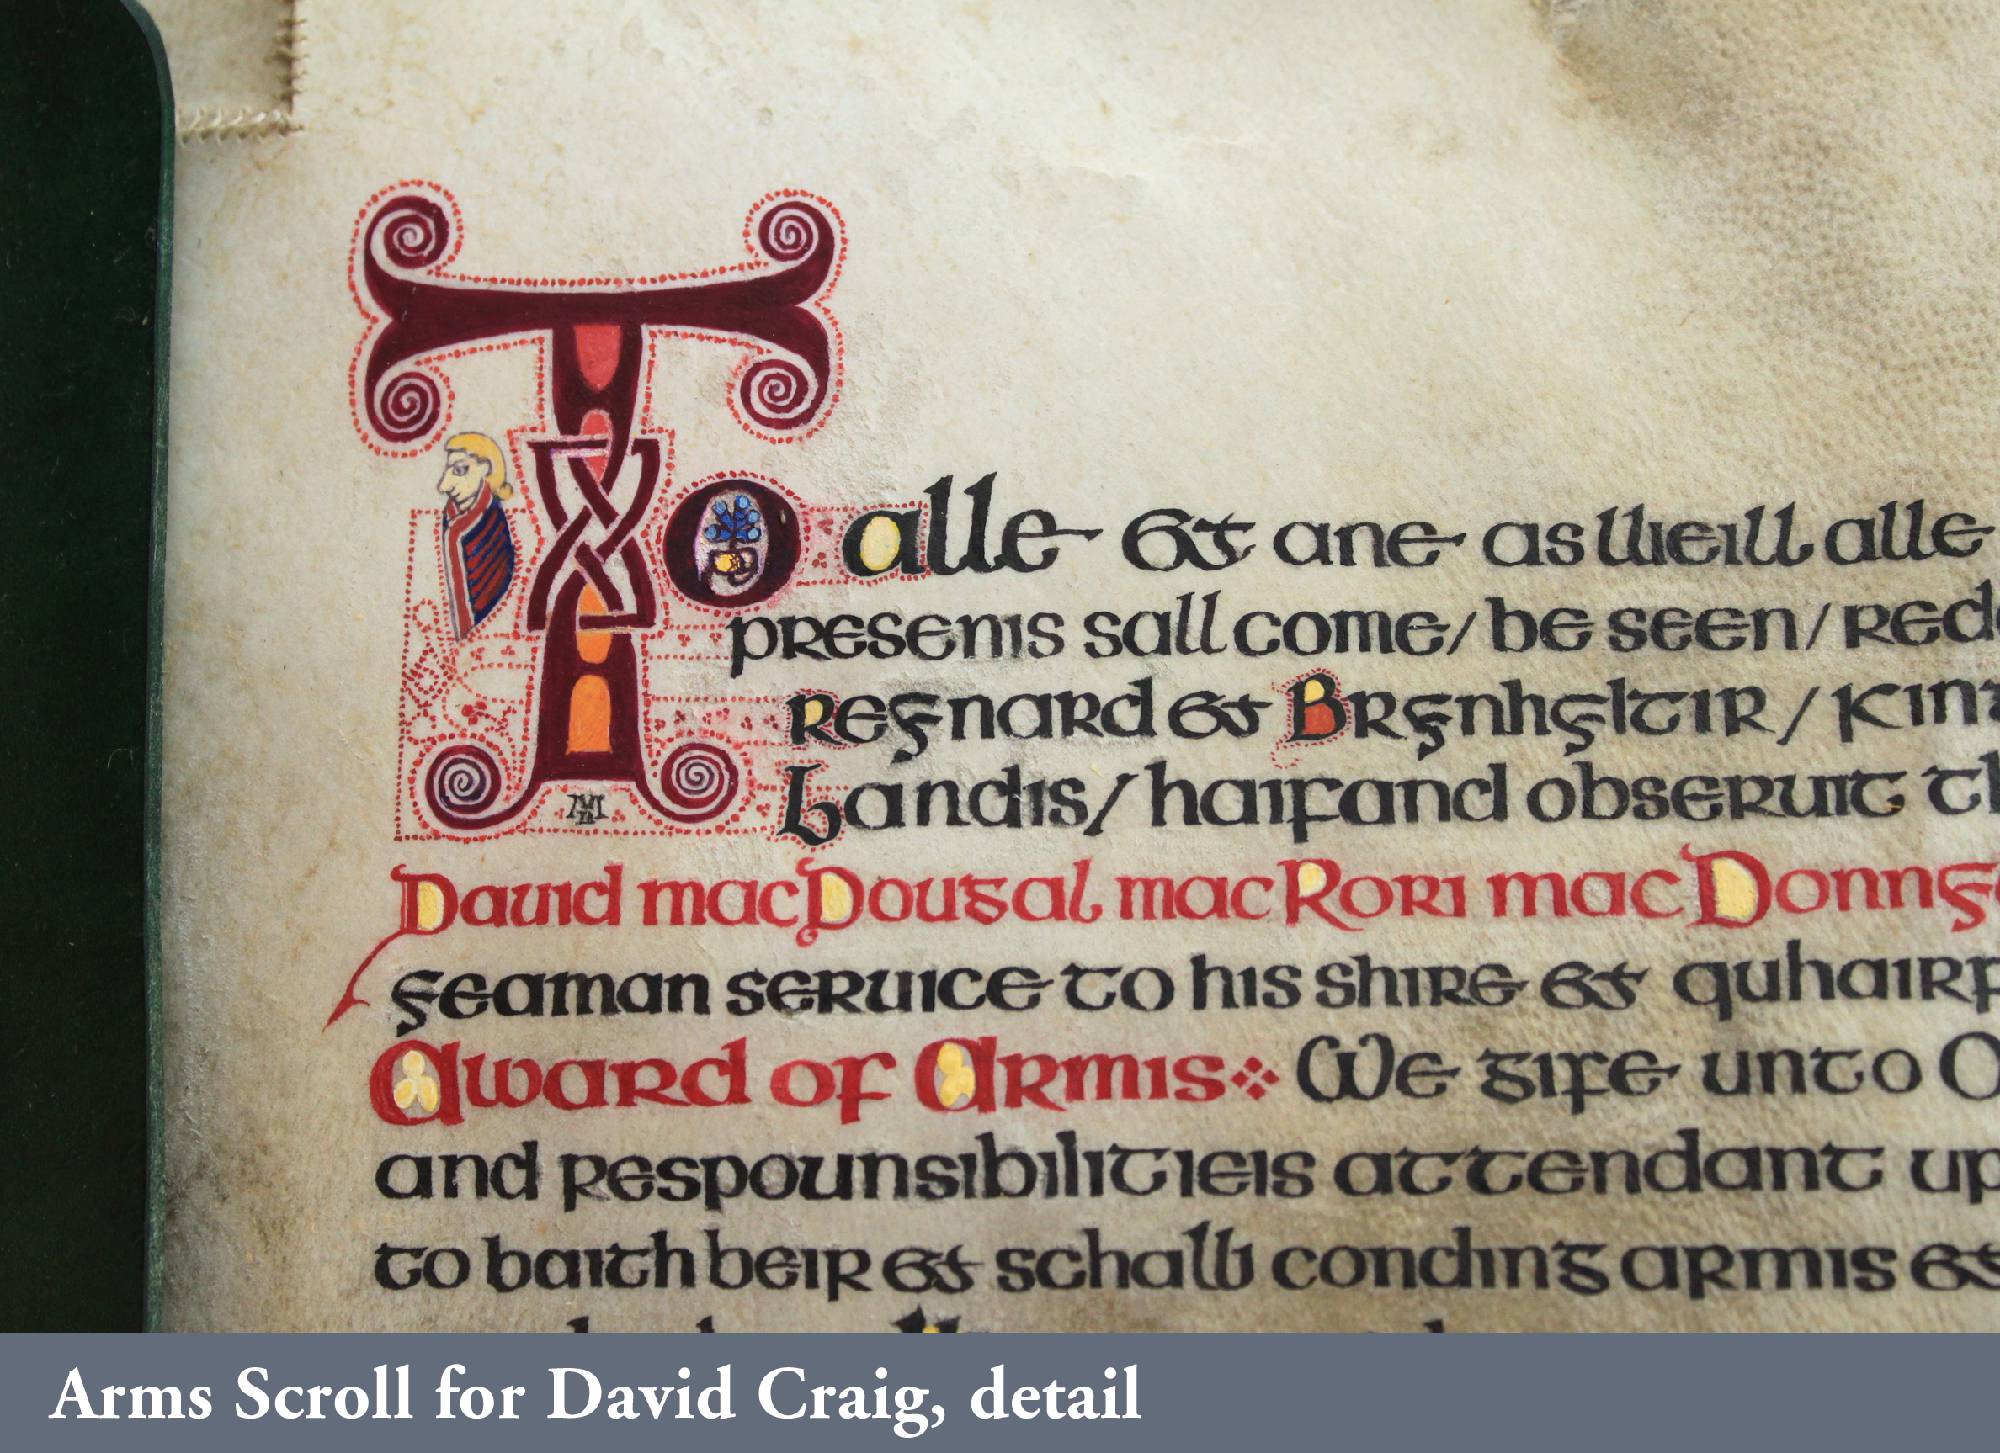 To alle & ane as weill alle
presents sall come/ be seen/ red
Reȝnard & Brȝnhȝltir/ Kin
Landis/ haifand obseruit th
Dauid macDougal mac Rori mac Donnȝ
ȝeaman seruice to his shire & quhair
Award of Armis We gife unto
and respounsibilitieis attendant up
to baith beir & schaw conding armis &
Arms Scroll for David Craig, detail